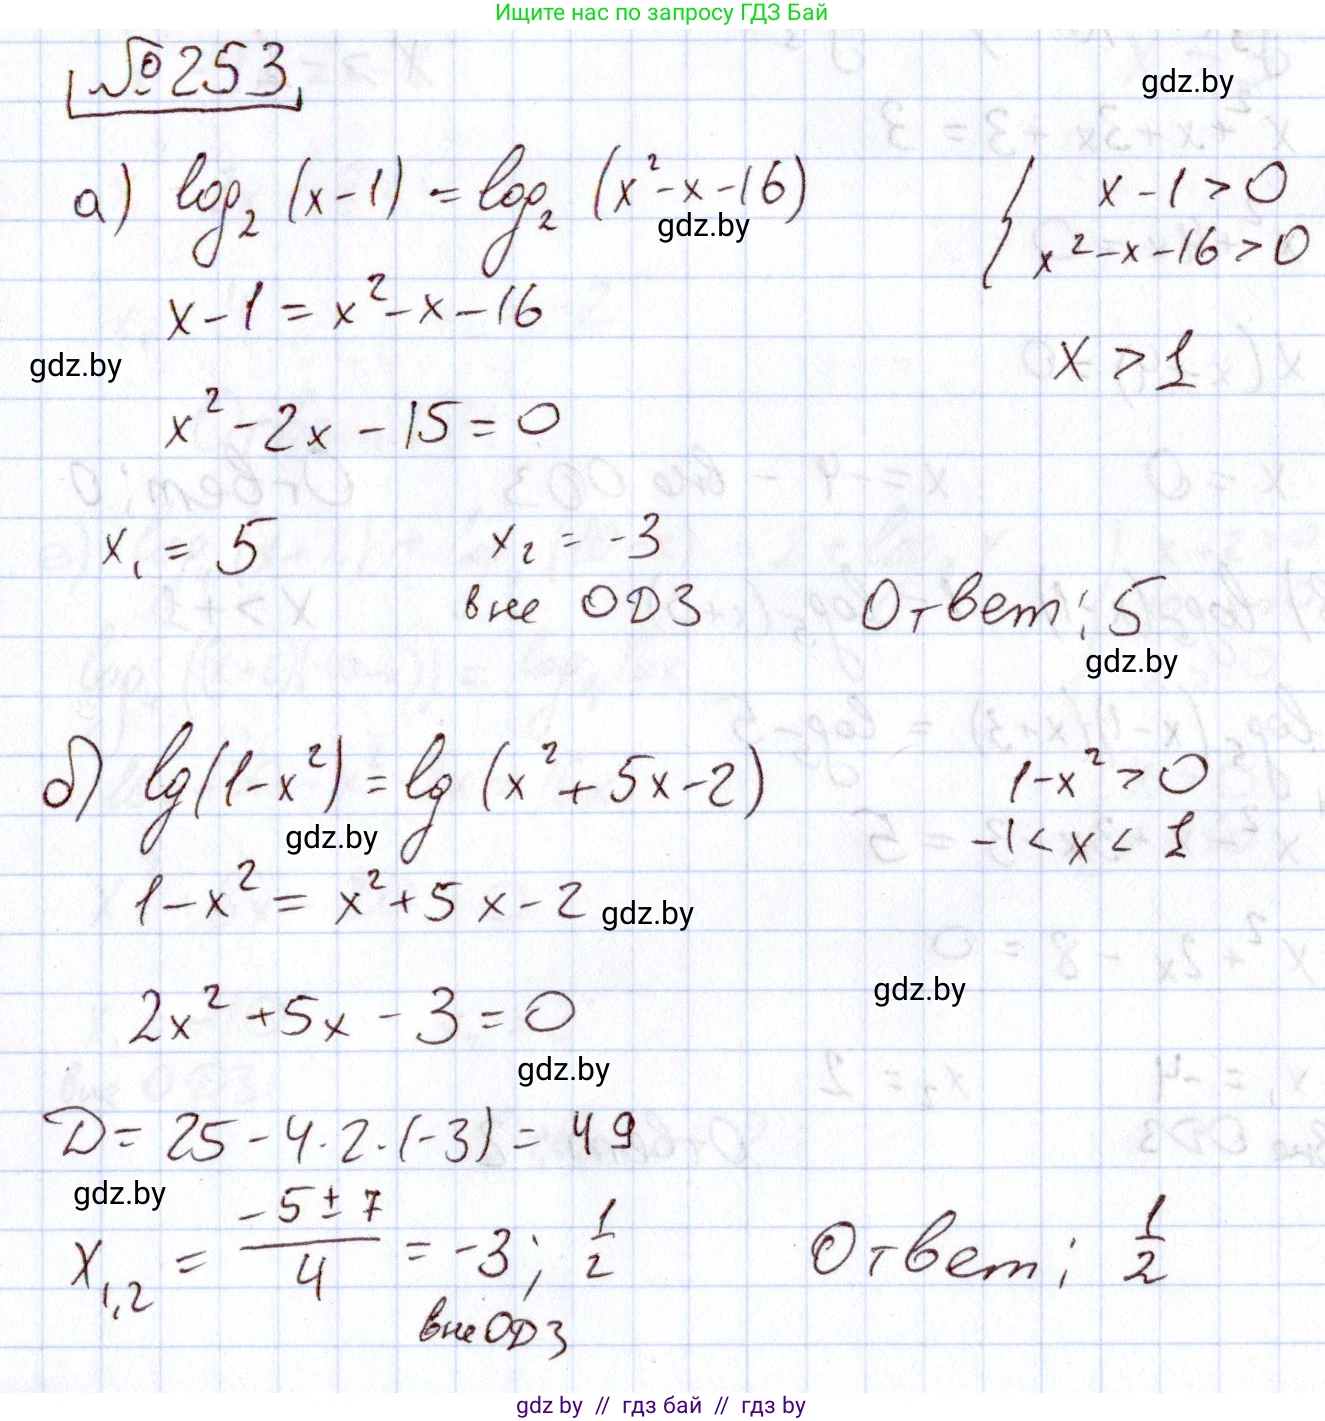 Ищите нас по запросу ГДЗ Бай
№253
gdz.by
а) log₂ (x-1) = log₂ (x²-x-16)
{ x-1>0
x²-x-16>0
gdz.by
x-1 = x²-x-16
gdz.by
x > 1
x²-2x-15=0
x₁ = 5
x₂ = -3
вне ОДЗ
Ответ: 5
gdz.by
б) lg(1-x²) = lg (x²+5x-2)
1-x²>0
gdz.by
-1<x<1
1-x² = x²+5x-2
gdz.by
2x²+5x-3=0
gdz.by
gdz.by
D = 25-4·2·(-3) = 49
gdz.by
x₁,₂ = (-5±7)/4 = -3; 1/2
вне ОДЗ
Ответ: 1/2
gdz by // гдз бай // гдз by